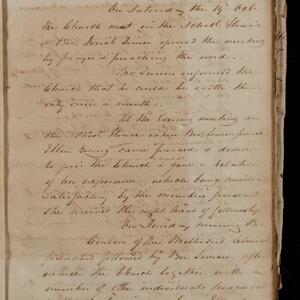 On Saturday the 19th Oct.
the Church met in the School House
Bro. Lemen opened the meeting
by prayer & preaching the word.
Bro. Lemen informed the
Church that he could be with them
only once a month.
At the evening meeting in
the School House when Bro. Lemen
Ellen Young came forward & desired
to join the Church & gave a relation
of her experience, which being
satisfactory by the members present
she received the right hand of fellowship
On Lord's day morning
of the Methodist Church
preached followed by Bro. Lemen, after
which the Church together with a
number of other individuals